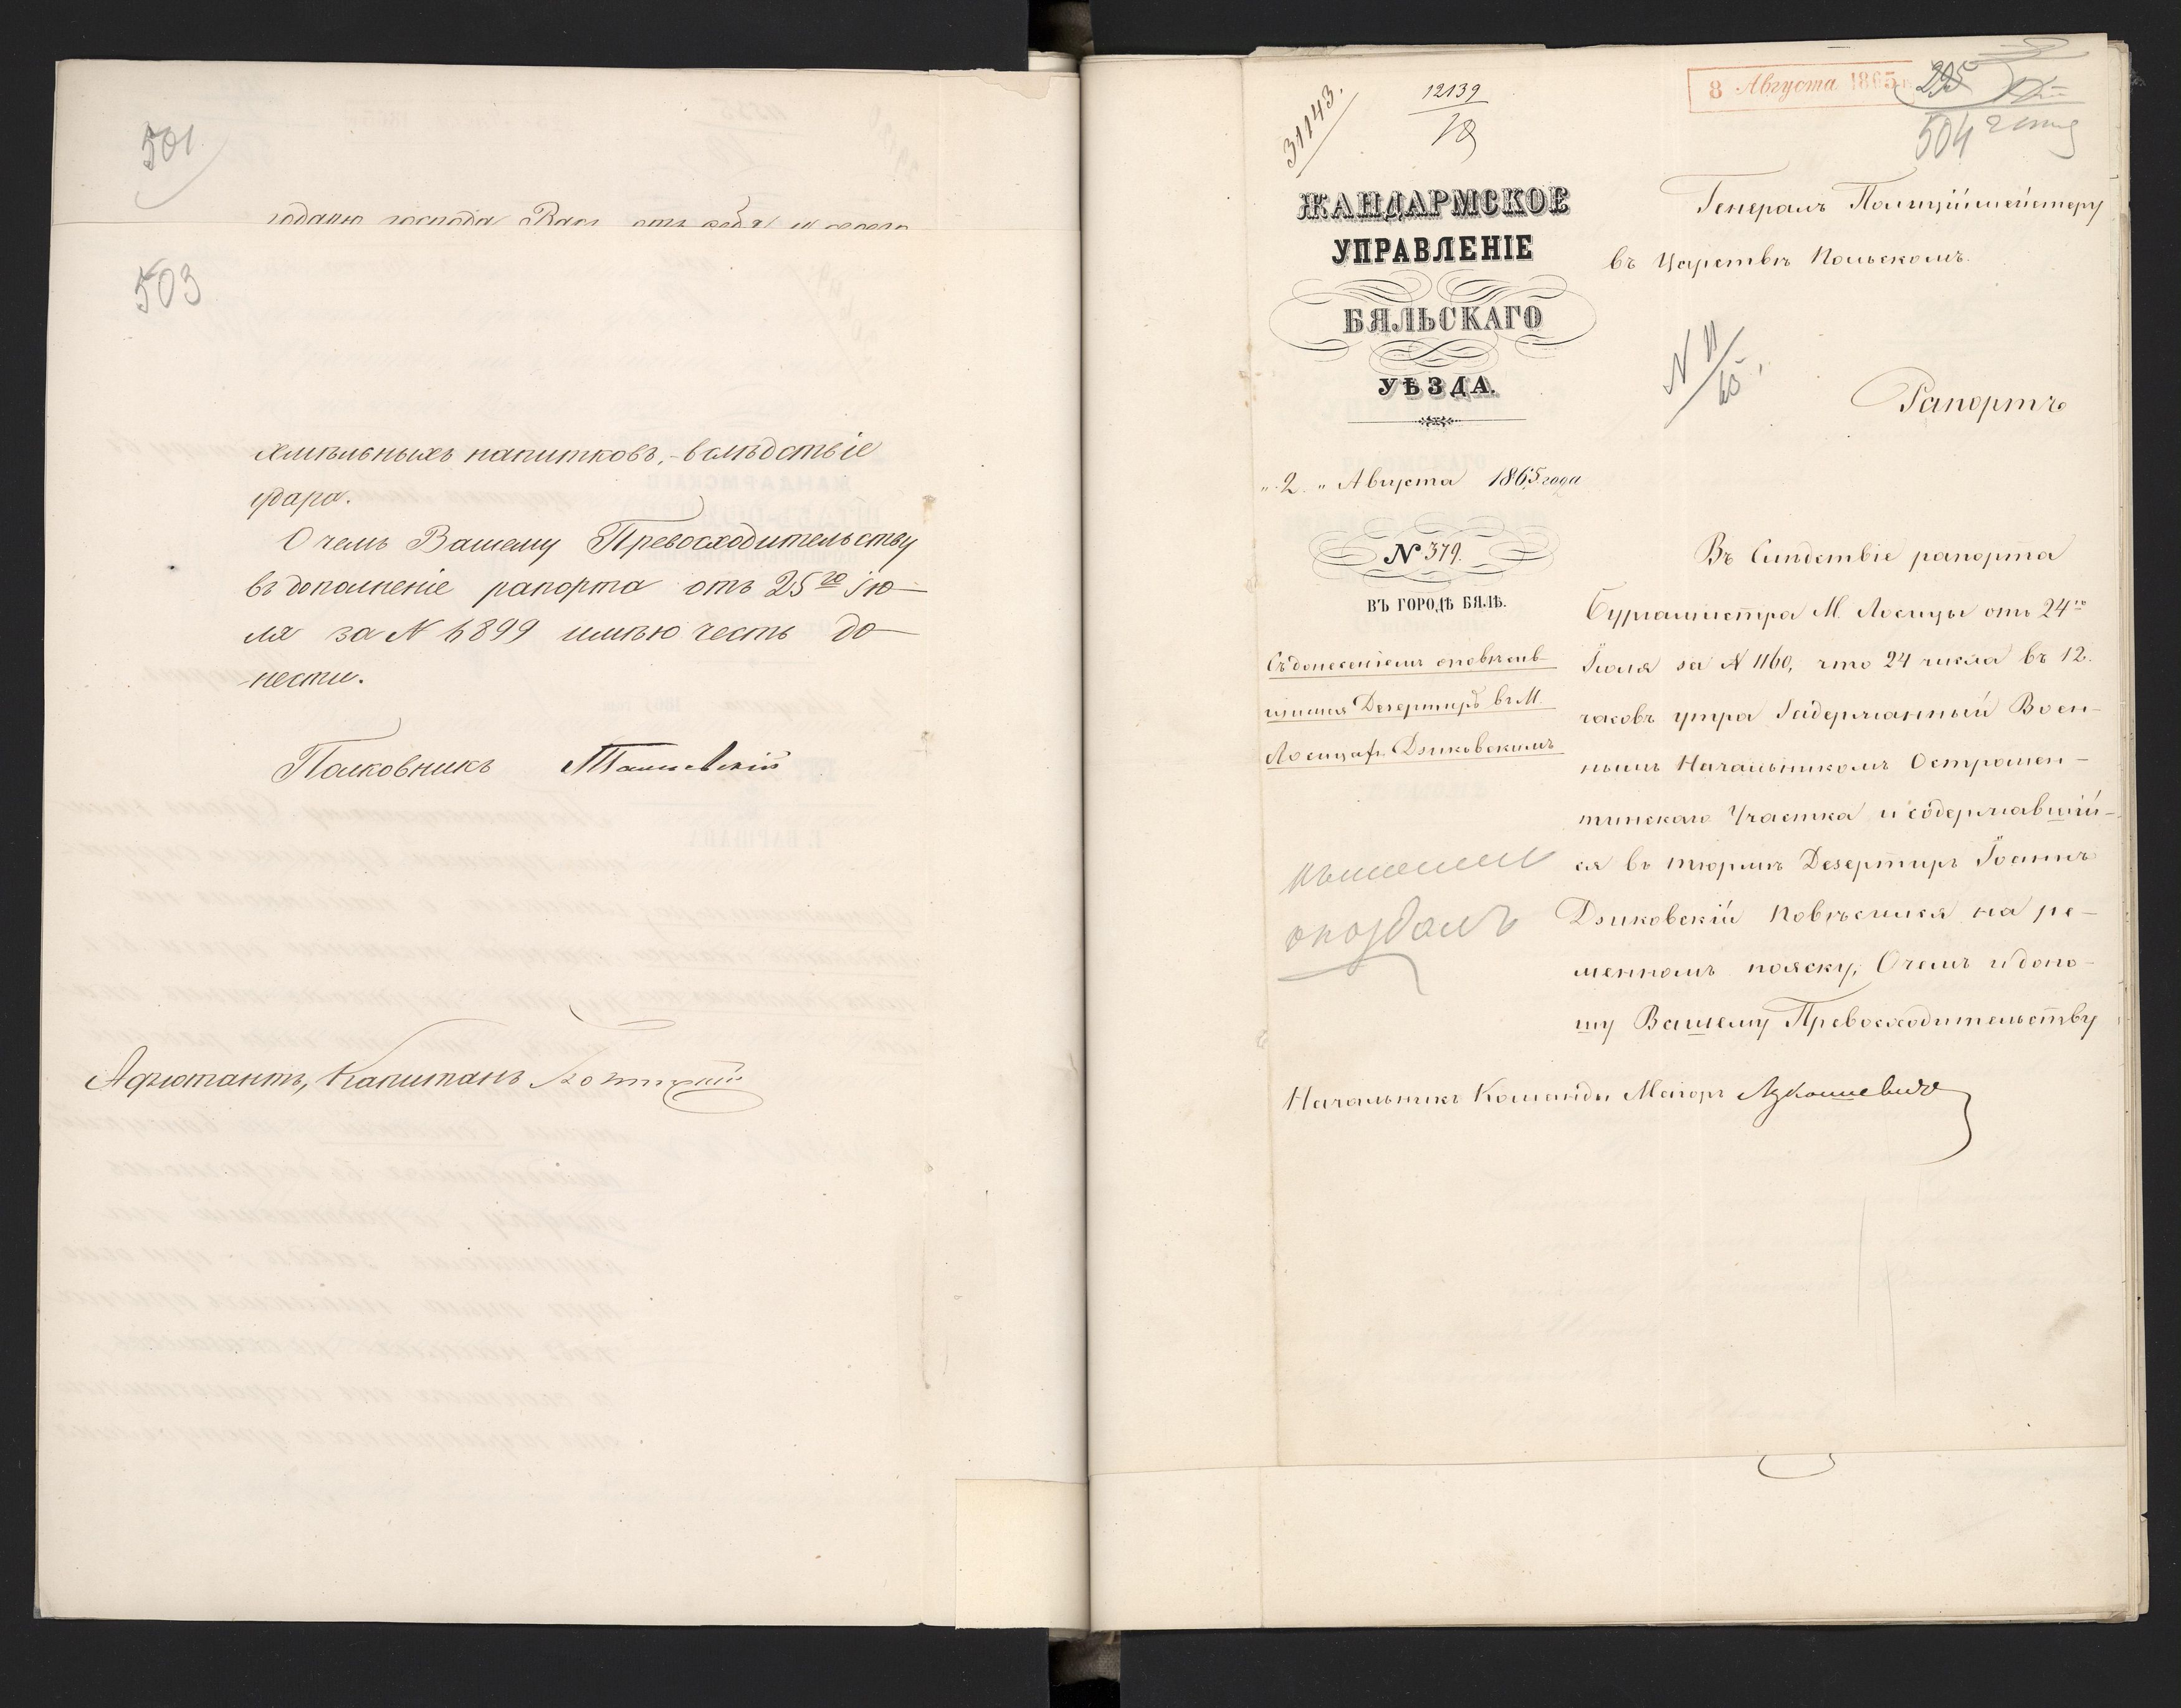 501
503
хмѣльныхъ напитковъ, - вслѣдствіе
удара.
О чемъ Вашему Превосходительству
въ дополненіе рапорта отъ 25го Ію-
ля за № 6899 имѣю честь до-
нести.
Полковникъ
Адъютантъ, Капитанъ
31143.
12139
19
8 Августа 1865 г.
295
504
ЖАНДАРМСКОЕ
УПРАВЛЕНІЕ
БЯЛЬСКАГО
УѢЗДА.
„ 2 „ Августа 1865 года
№ 379.
ВЪ ГОРОДѢ БЯЛѢ.
Съ донесеніемъ о повѣсив-
шимся Дезертирѣ въ М.
Лосицахъ Дзиковскимъ
опоздалъ
Генералъ Полиціймейстеру
въ Царствѣ Польскомъ.
N 11/65
Рапортъ
Въ Слѣдствіе рапорта
Бургамистра М. Лосицы отъ 24го
Іюля за № 1160, что 24 числа въ 12.
часовъ утра Задержанный Воен-
нымъ Начальникомъ Остромен-
тинскаго Участка и содержавшій-
ся въ тюрмѣ Дезертиръ Іоаннъ
Дзиковскій повѣсился на ре-
менномъ пояску, О чемъ и доно-
шу Вашему Превосходительству
Начальникъ Команды Маіоръ